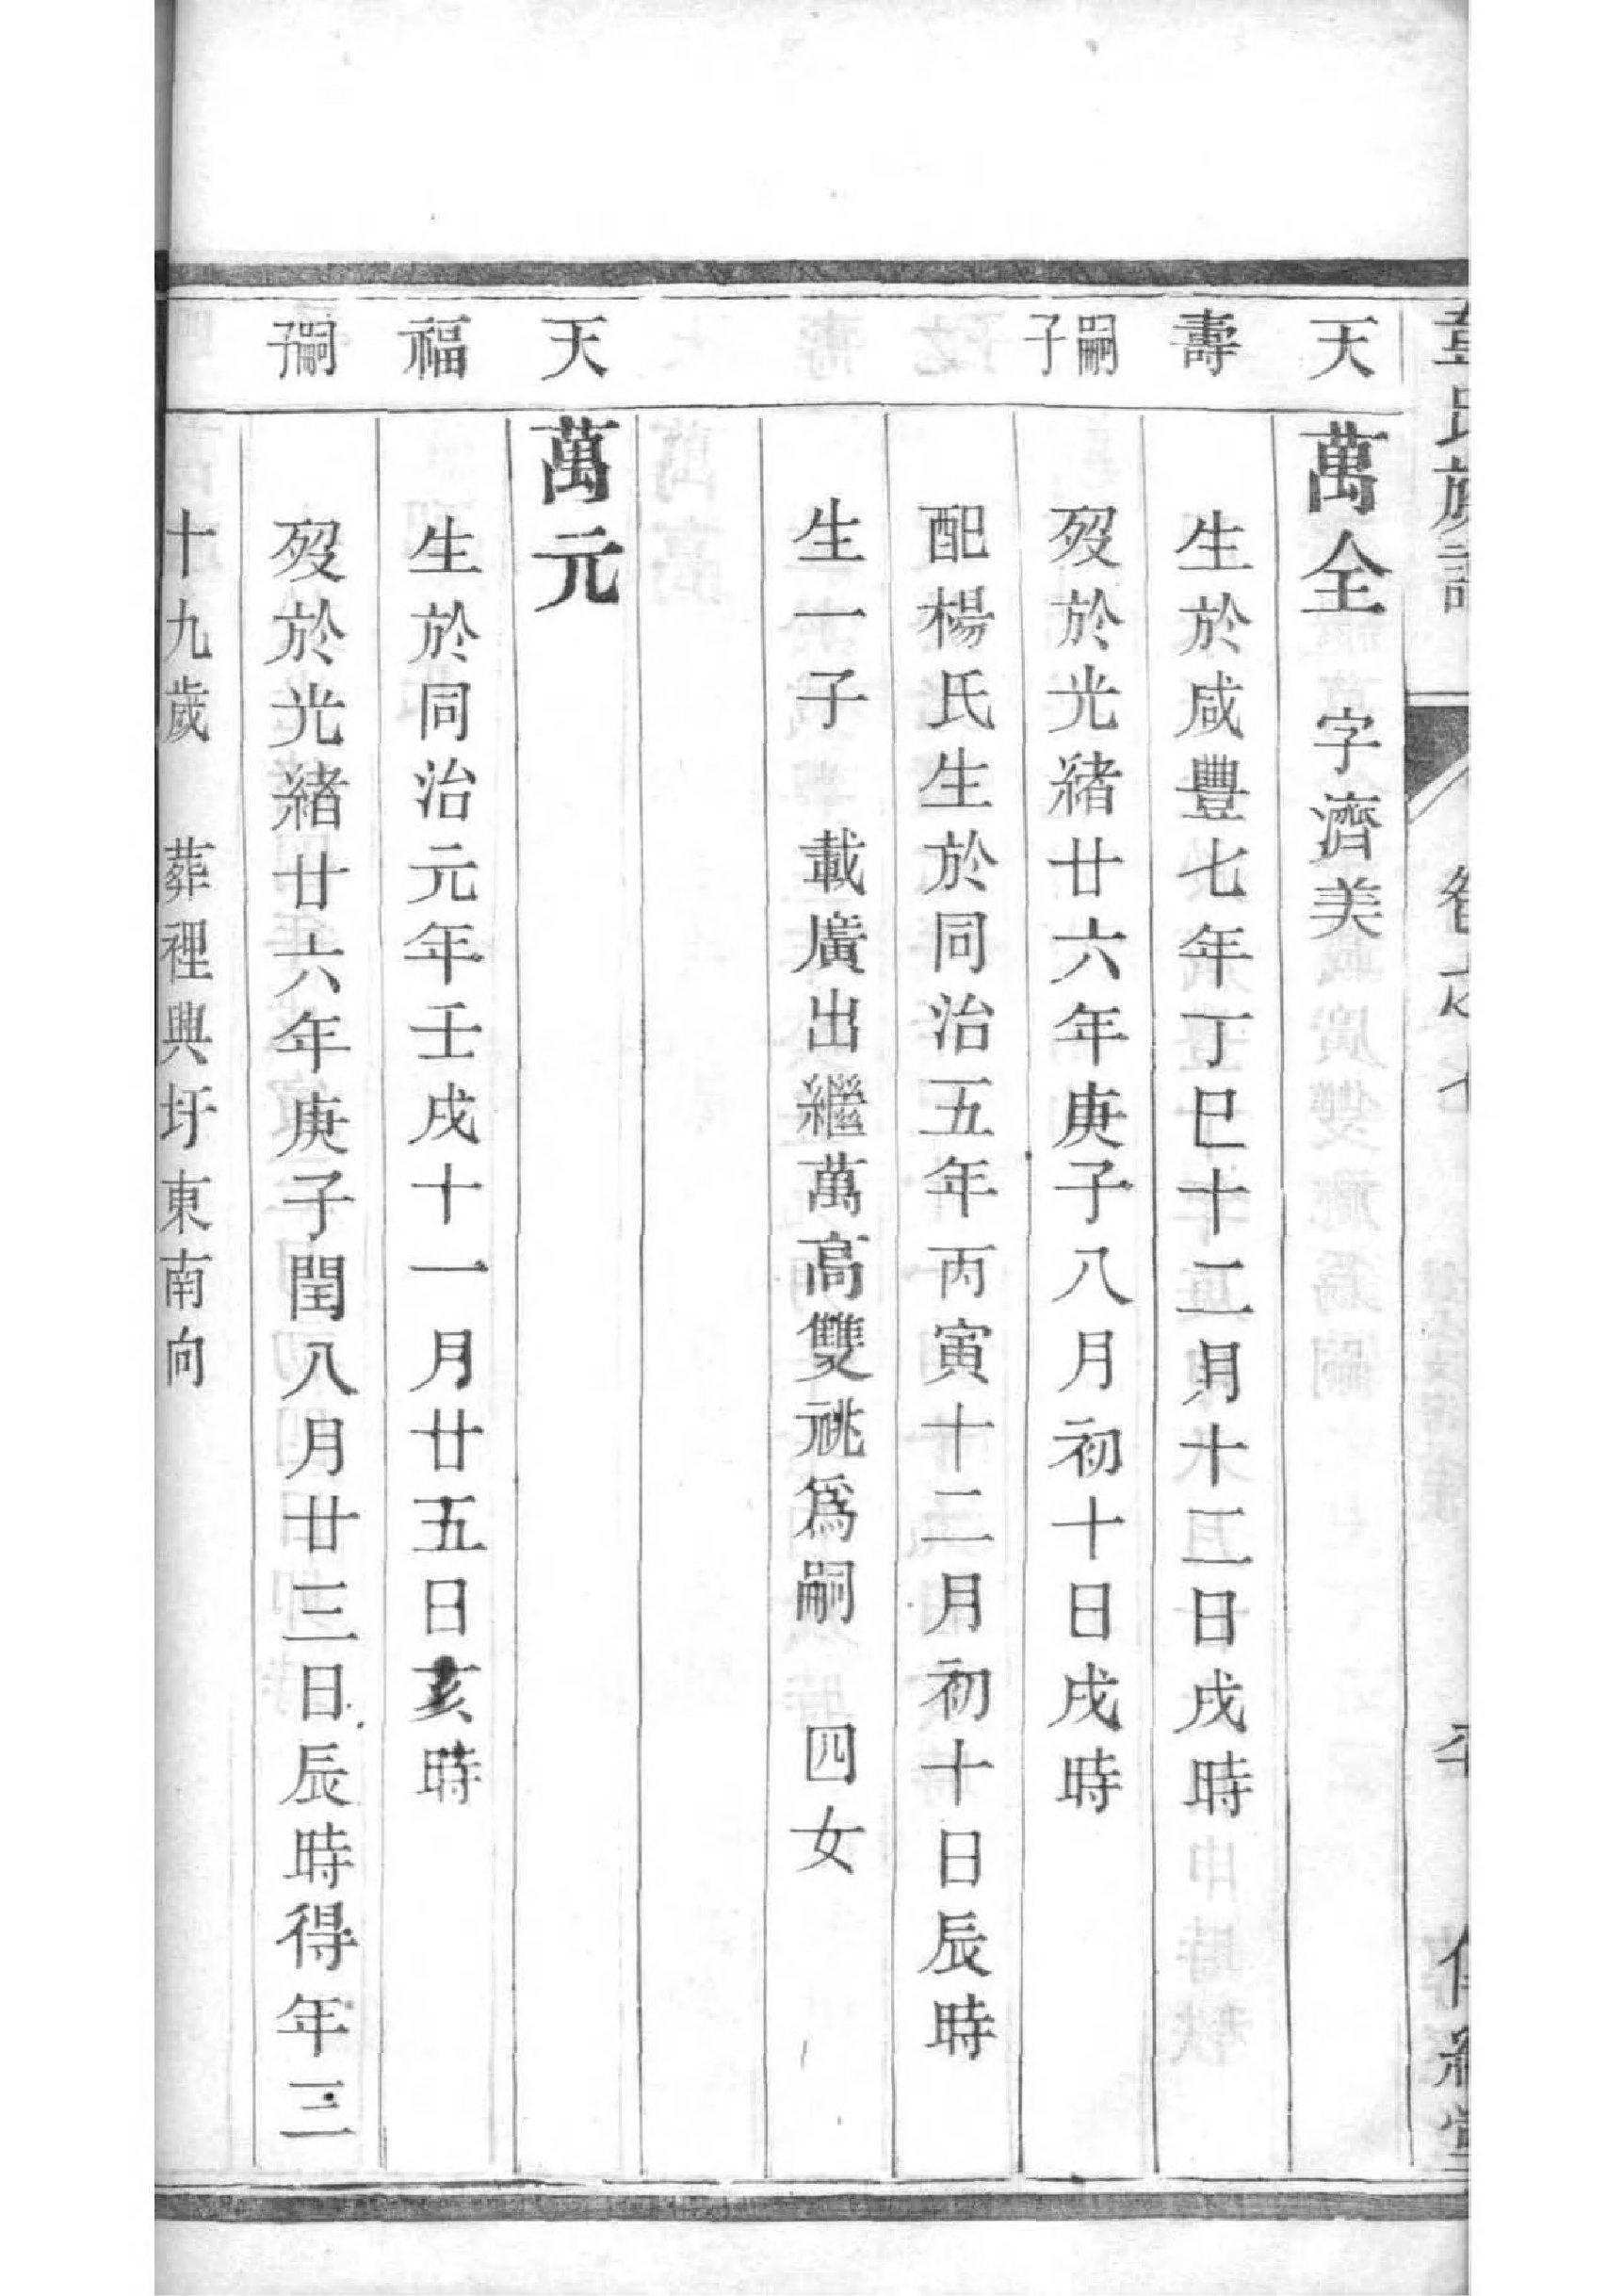 氏族譜
卷之七
天
萬全 字濟美
壽
生於咸豐七年丁巳十二月十三日戌時
嗣子
歿於光緒廿六年庚子八月初十日戌時
配楊氏生於同治五年丙寅十二月初十日辰時
生一子 載廣出繼萬高雙祧爲嗣 四女
天
萬元
福
生於同治元年壬戌十一月廿五日亥時
嗣子
歿於光緒廿六年庚子閏八月廿三日辰時得年三
十九歲 葬裡興圩東南向